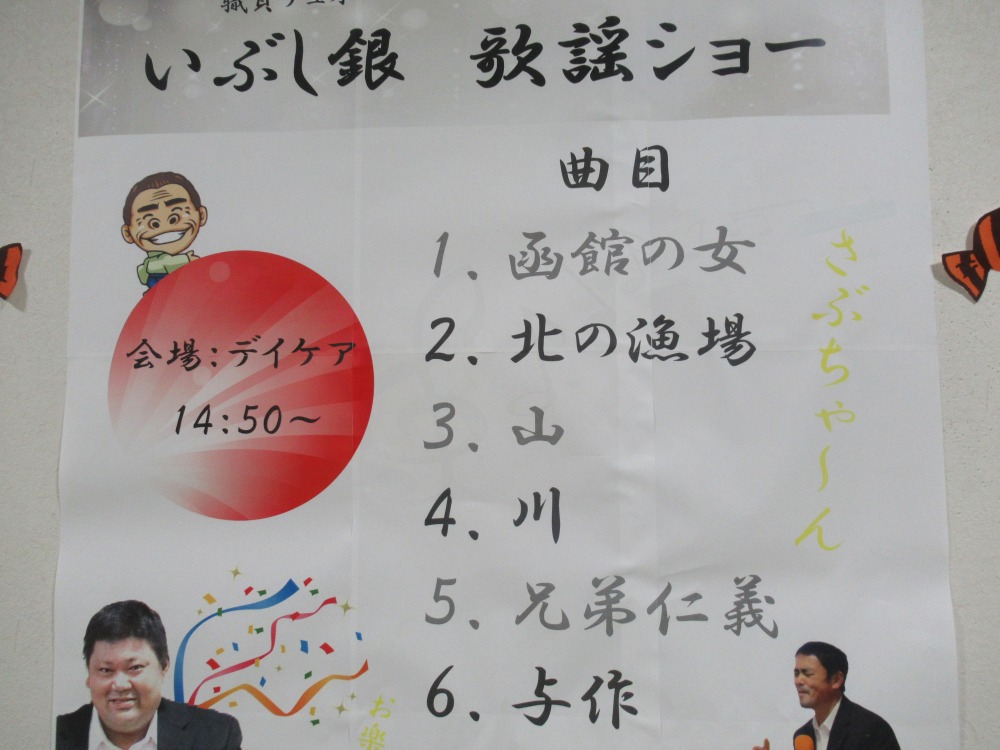 いぶし銀 歌謡ショー
曲目
1. 函館の女
2. 北の漁場
3. 山
4. 川
5. 兄弟仁義
6. 与作
会場:デイケア
14:50～
さぶちゃ～ん
お楽